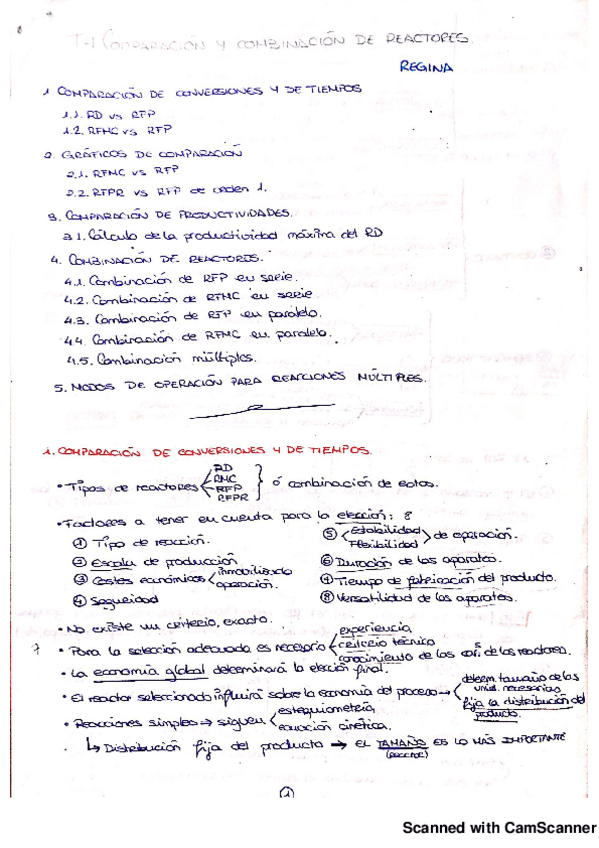 T-1 COMPARACIÓN Y COMBINACIÓN DE REACTORES.
REGINA
1. COMPARACIÓN DE CONVERSIONES Y DE TIEMPOS
1.1. RD vs RFP
1.2. RFMC vs RFP
2. GRÁFICOS DE COMPARACIÓN
2.1. RFMC vs RFP
2.2. RFPR vs RFP de orden 1.
3. COMPARACIÓN DE PRODUCTIVIDADES.
3.1. Cálculo de la productividad máxima del RD
4. COMBINACIÓN DE REACTORES.
4.1. Combinación de RFP en serie.
4.2. Combinación de RFMC en serie
4.3. Combinación de RFP en paralelo.
4.4. Combinación de RFMC en paralelo.
4.5. Combinación múltiples.
5. MODOS DE OPERACIÓN PARA REACCIONES MÚLTIPLES.
1. COMPARACIÓN DE CONVERSIONES Y DE TIEMPOS.
• Tipos de reactores RD RMC RFP RFPR ó combinación de estos.
• Factores a tener en cuenta para la elección: 8
① Tipo de reacción.
② Escala de producción
③ Costes económicos inmovilizado operación.
④ Seguridad
⑤ Estabilidad Flexibilidad de operación.
⑥ Duración de los aparatos.
⑦ Tiempo de fabricación del producto.
⑧ Versatilidad de los aparatos.
• No existe un criterio, exacto.
• Para la selección adecuada es necesario experiencia criterio técnico conocimiento de los de los reactores.
• La economía global determinará la elección final.
• El reactor seleccionado influirá sobre la economía del proceso → determ. tamaño de las unid. necesarias fija la distribución del producto.
• Reacciones simples → siguen estequiometría ecuación cinética.
↳ Distribución fija del producto → EL TAMAÑO ES LO MÁS IMPORTANTE
(REACTOR)
(1)
Scanned with CamScanner